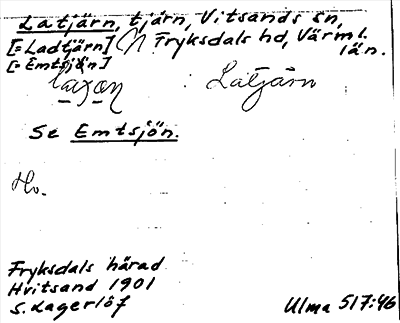 Latjärn, tjärn, Vitsands sn,
[= Ladtjärn] Fryksdals hd, Värml.
[= Emtsjön] län.
Latjärn
Se Emtsjön.
Fryksdals härad
Hvitsand 1901
S. Lagerlöf
Ulma 517:46